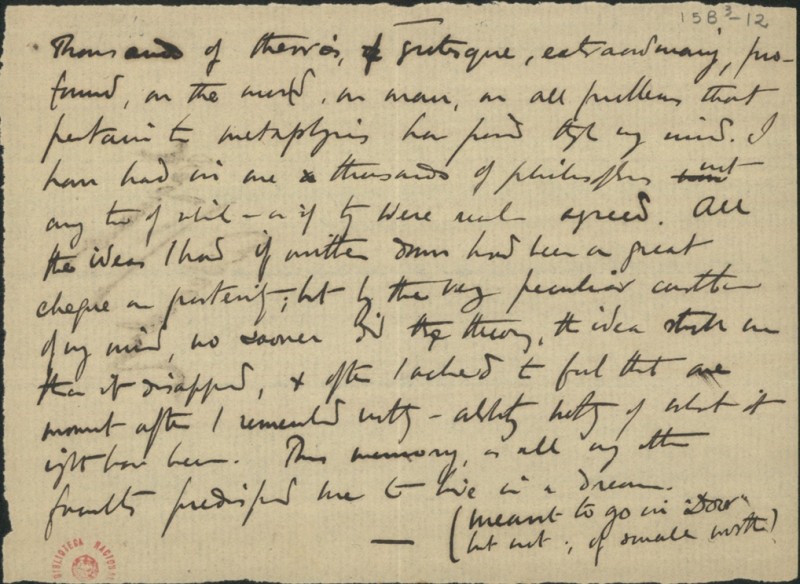 15B³-12
Thousands of theories, grotesque, extraordinary, pro-
found, on the world, on man, on all problems that
pertain to metaphysics have passed through my mind. I
have had in me thousands of philosophies not
any two of which — as if they were real — agreed. All
the ideas I had if written down had been a great
cheque on posterity; but by the very peculiar constitution
of my mind, no sooner did the theory, the idea struck me
than it disappeared, & after I ached to feel that one
moment after I remembered nothing — absolutely nothing of what it
might have been. Thus memory, as all my other
faculties predisposed me to live in a dream.
(meant to go in "Door"
but not; of small worth)
BIBLIOTECA NACIONAL